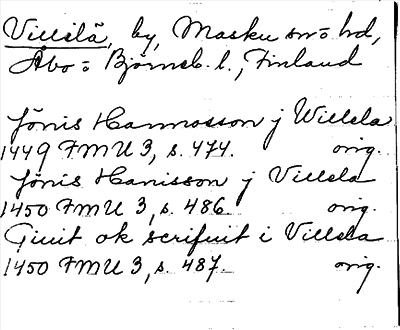 Villilä, by, Masku sn o hd,
Åbo o Björneb. l., Finland
Jönis Hannosson j Willela
1449 FMU 3, s. 474. orig.
Jönis Hanisson j Villela
1450 FMU 3, s. 486. orig.
Giuit ok scrifuit i Villela
1450 FMU 3, s. 487. orig.